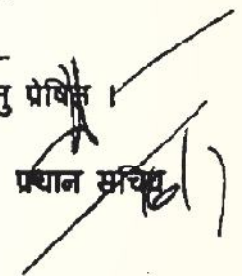 प्रेषित ।
प्रधान सचिव